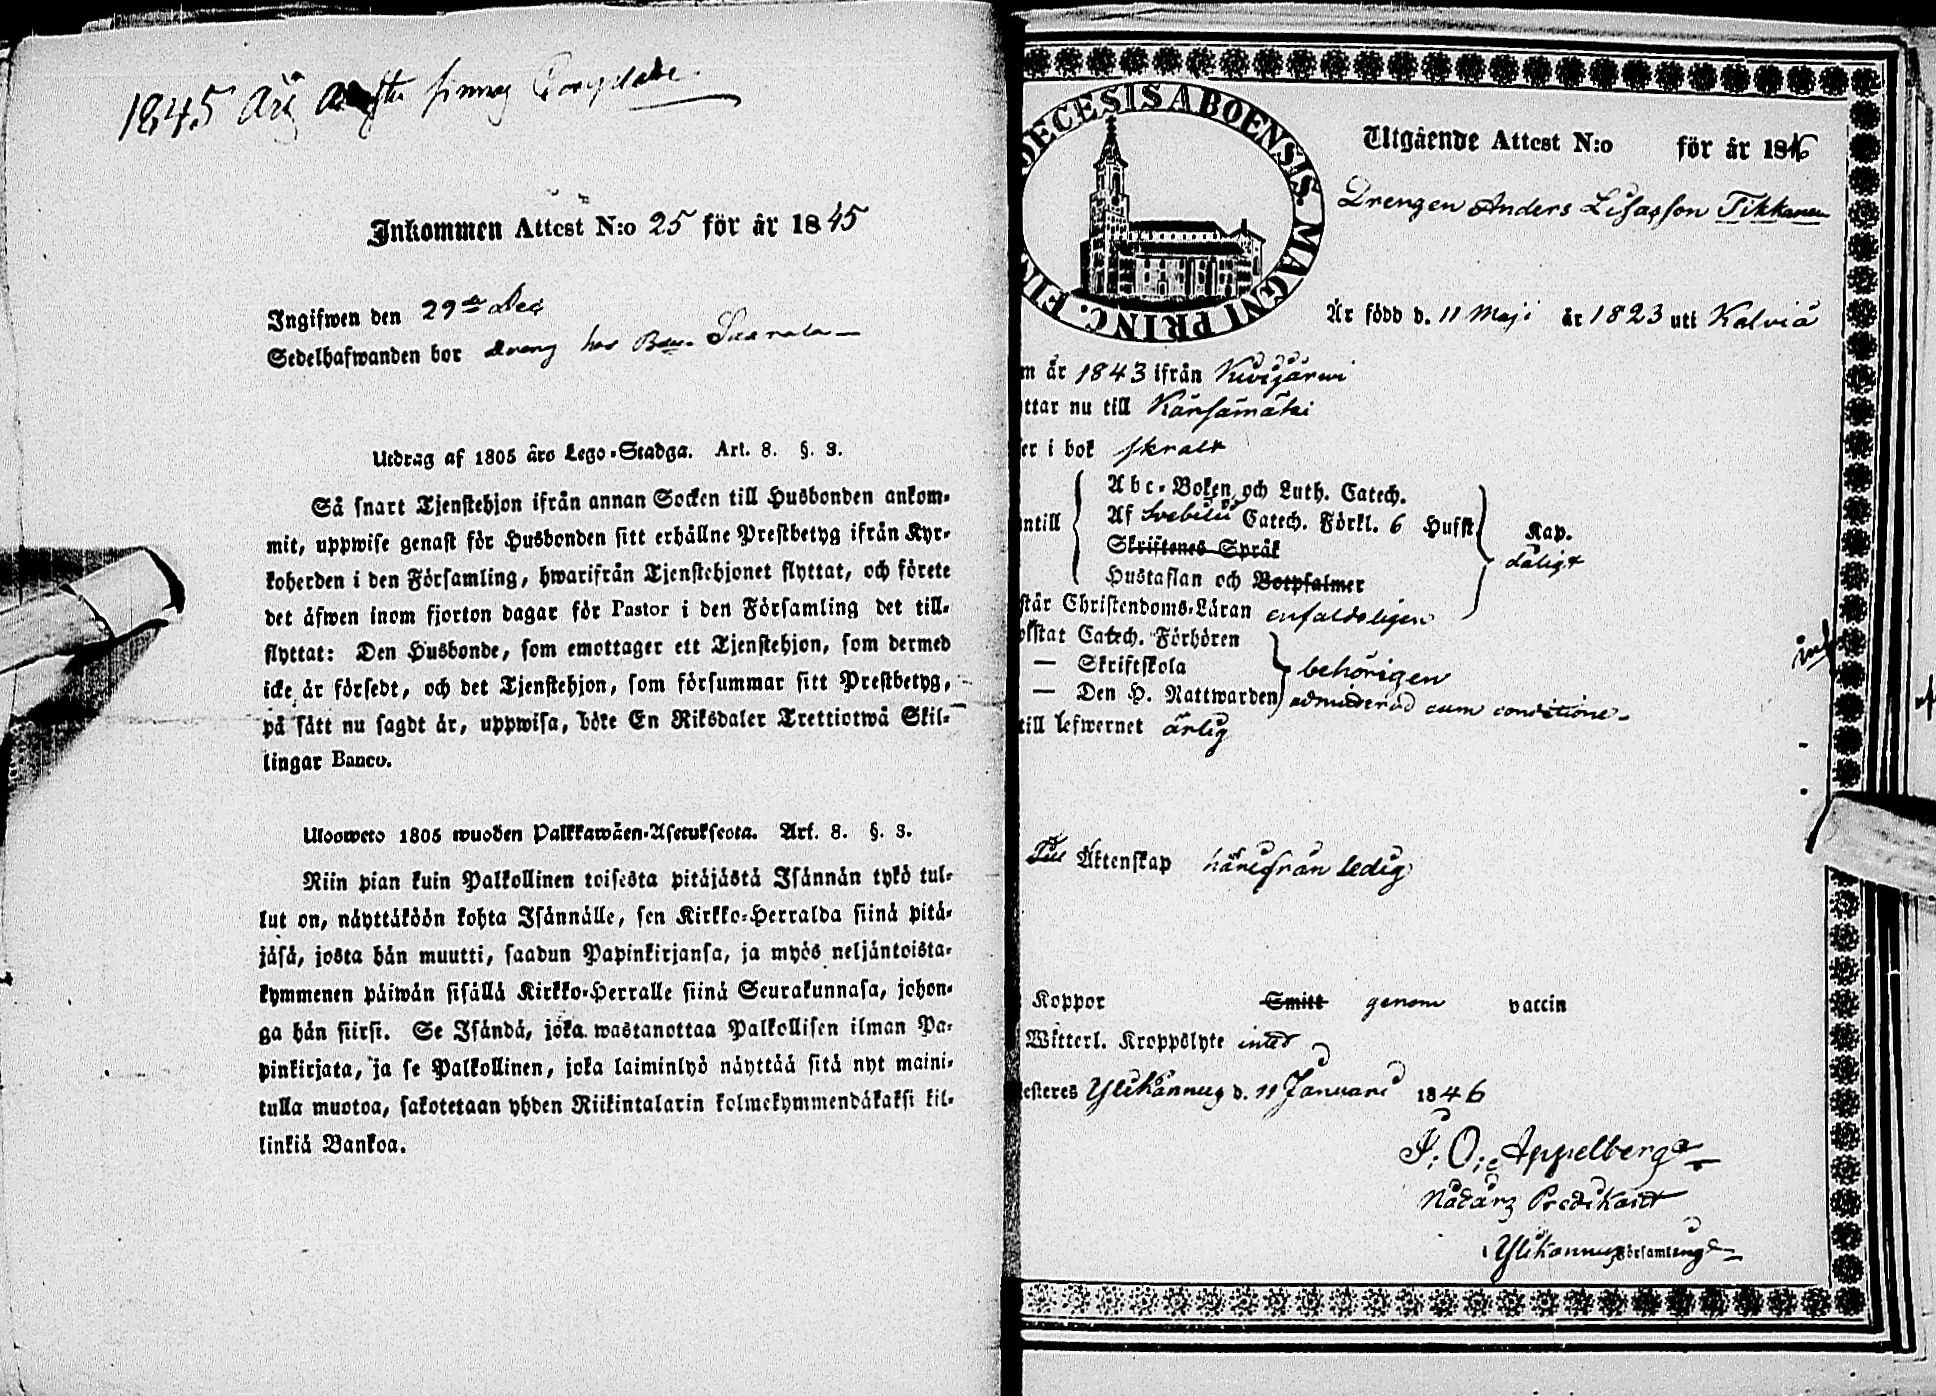 1845
Inkommen Attest N:o 25 för år 1845
Ingifwen den 29 Dec
Sedelhafwanden bor dreng hos
Utdrag af 1805 års Lego-Stadga. Art. 8. §. 3.
Så snart Tjenstehjon ifrån annan Socken till Husbonden ankom-
mit, uppwise genast för Husbonden sitt erhållne Prestbetyg ifrån Kyr-
koherden i den Församling, hwarifrån Tjenstehjonet flyttat, och förete
det äfwen inom fjorton dagar för Pastor i den Församling det till-
flyttat: Den Husbonde, som emottager ett Tjenstehjon, som dermed
icke är försedt, och det Tjenstehjon, som försummar sitt Prestbetyg,
på sätt nu sagdt är, uppwisa, böte En Riksdaler Trettiotwå Skil-
lingar Banco.
Ulosweto 1805 wuoden Palkkawäen-Asetuksesta. Art. 8. §. 3.
Niin pian kuin Palkollinen toisesta pitäjästä Isännän tykö tul-
lut on, näyttäköön kohta Isännälle, sen Kirkko-Herralda siinä pitä-
jäsä, josta hän muutti, saadun Papinkirjansa, ja myös neljäntoista-
kymmenen päiwän sisällä Kirkko-Herralle siinä Seurakunnasa, johon-
ga hän siirst. Se Isändä, joka wastanottaa Palkollisen ilman Pa-
pinkirjata, ja se Palkollinen, joka laiminlyö näyttää sitä nyt maini-
tulla muotoa, sakotetaan yhden Riikintalarin kolmekymmendäkaksi kil-
linkiä Bankoa.
DECESIS ABOENSIS. MAGNI PRINC. FIN
Utgående Attest N:o för år 1846
Drengen Anders Lisasson Tikkanen
Är född d. 11 Maji år 1823 uti Kalviå
m år 1843 ifrån Kivijärwi
ttar nu till Kärsämäki
er i bok skralt
Abc-Boken och Luth. Catech.
ntill Af Svebilii Catech. Förkl. 6 Hufst Kap.
Skriftenes Språk dåligt
Hustaflan och Botpsalmer
står Christendoms-Läran enfaldeligen
istat Catech. Förhören
— Skriftskola behörigen
— Den H. Nattwarden admitterad cum conditione
till lefwernet ärlig
Till Äktenskap härifrån ledig
Koppor Smitt genom vaccin
Witterl. Kroppslyte intet
esteres Ylikannus d. 11 Januari 1846
J. O. Appelberg
Nådårs Predikant
i Ylikannus Församling